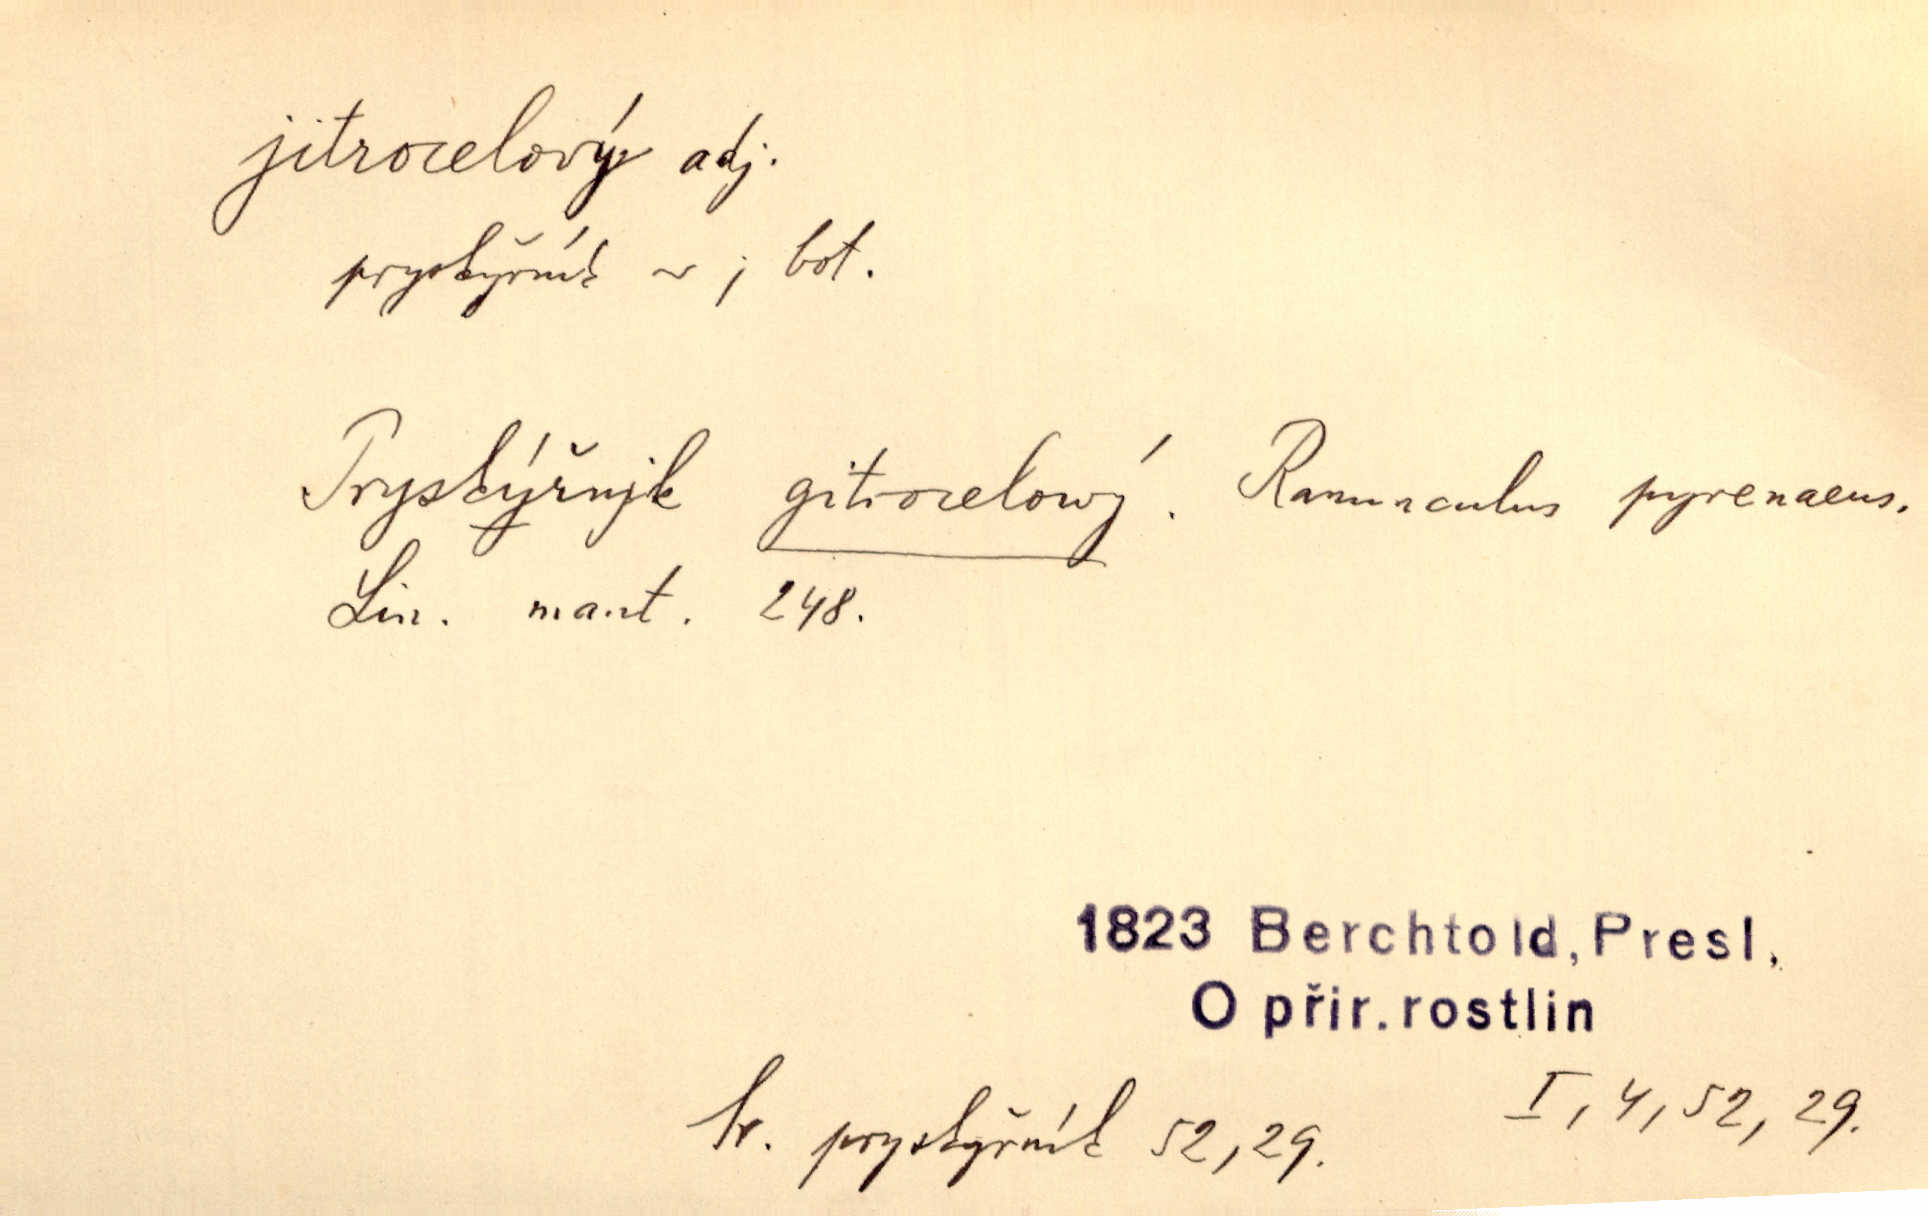 jitrocelový adj.
pryskyřník ~ ; bot.
Pryskýřnjk gitrocelowý. Ranunculus pyrenaeus.
Lin. mant. 248.
1823 Berchtold, Presl,
O přir. rostlin
I, 4, 52, 29.
Sr. pryskyřník 52, 29.